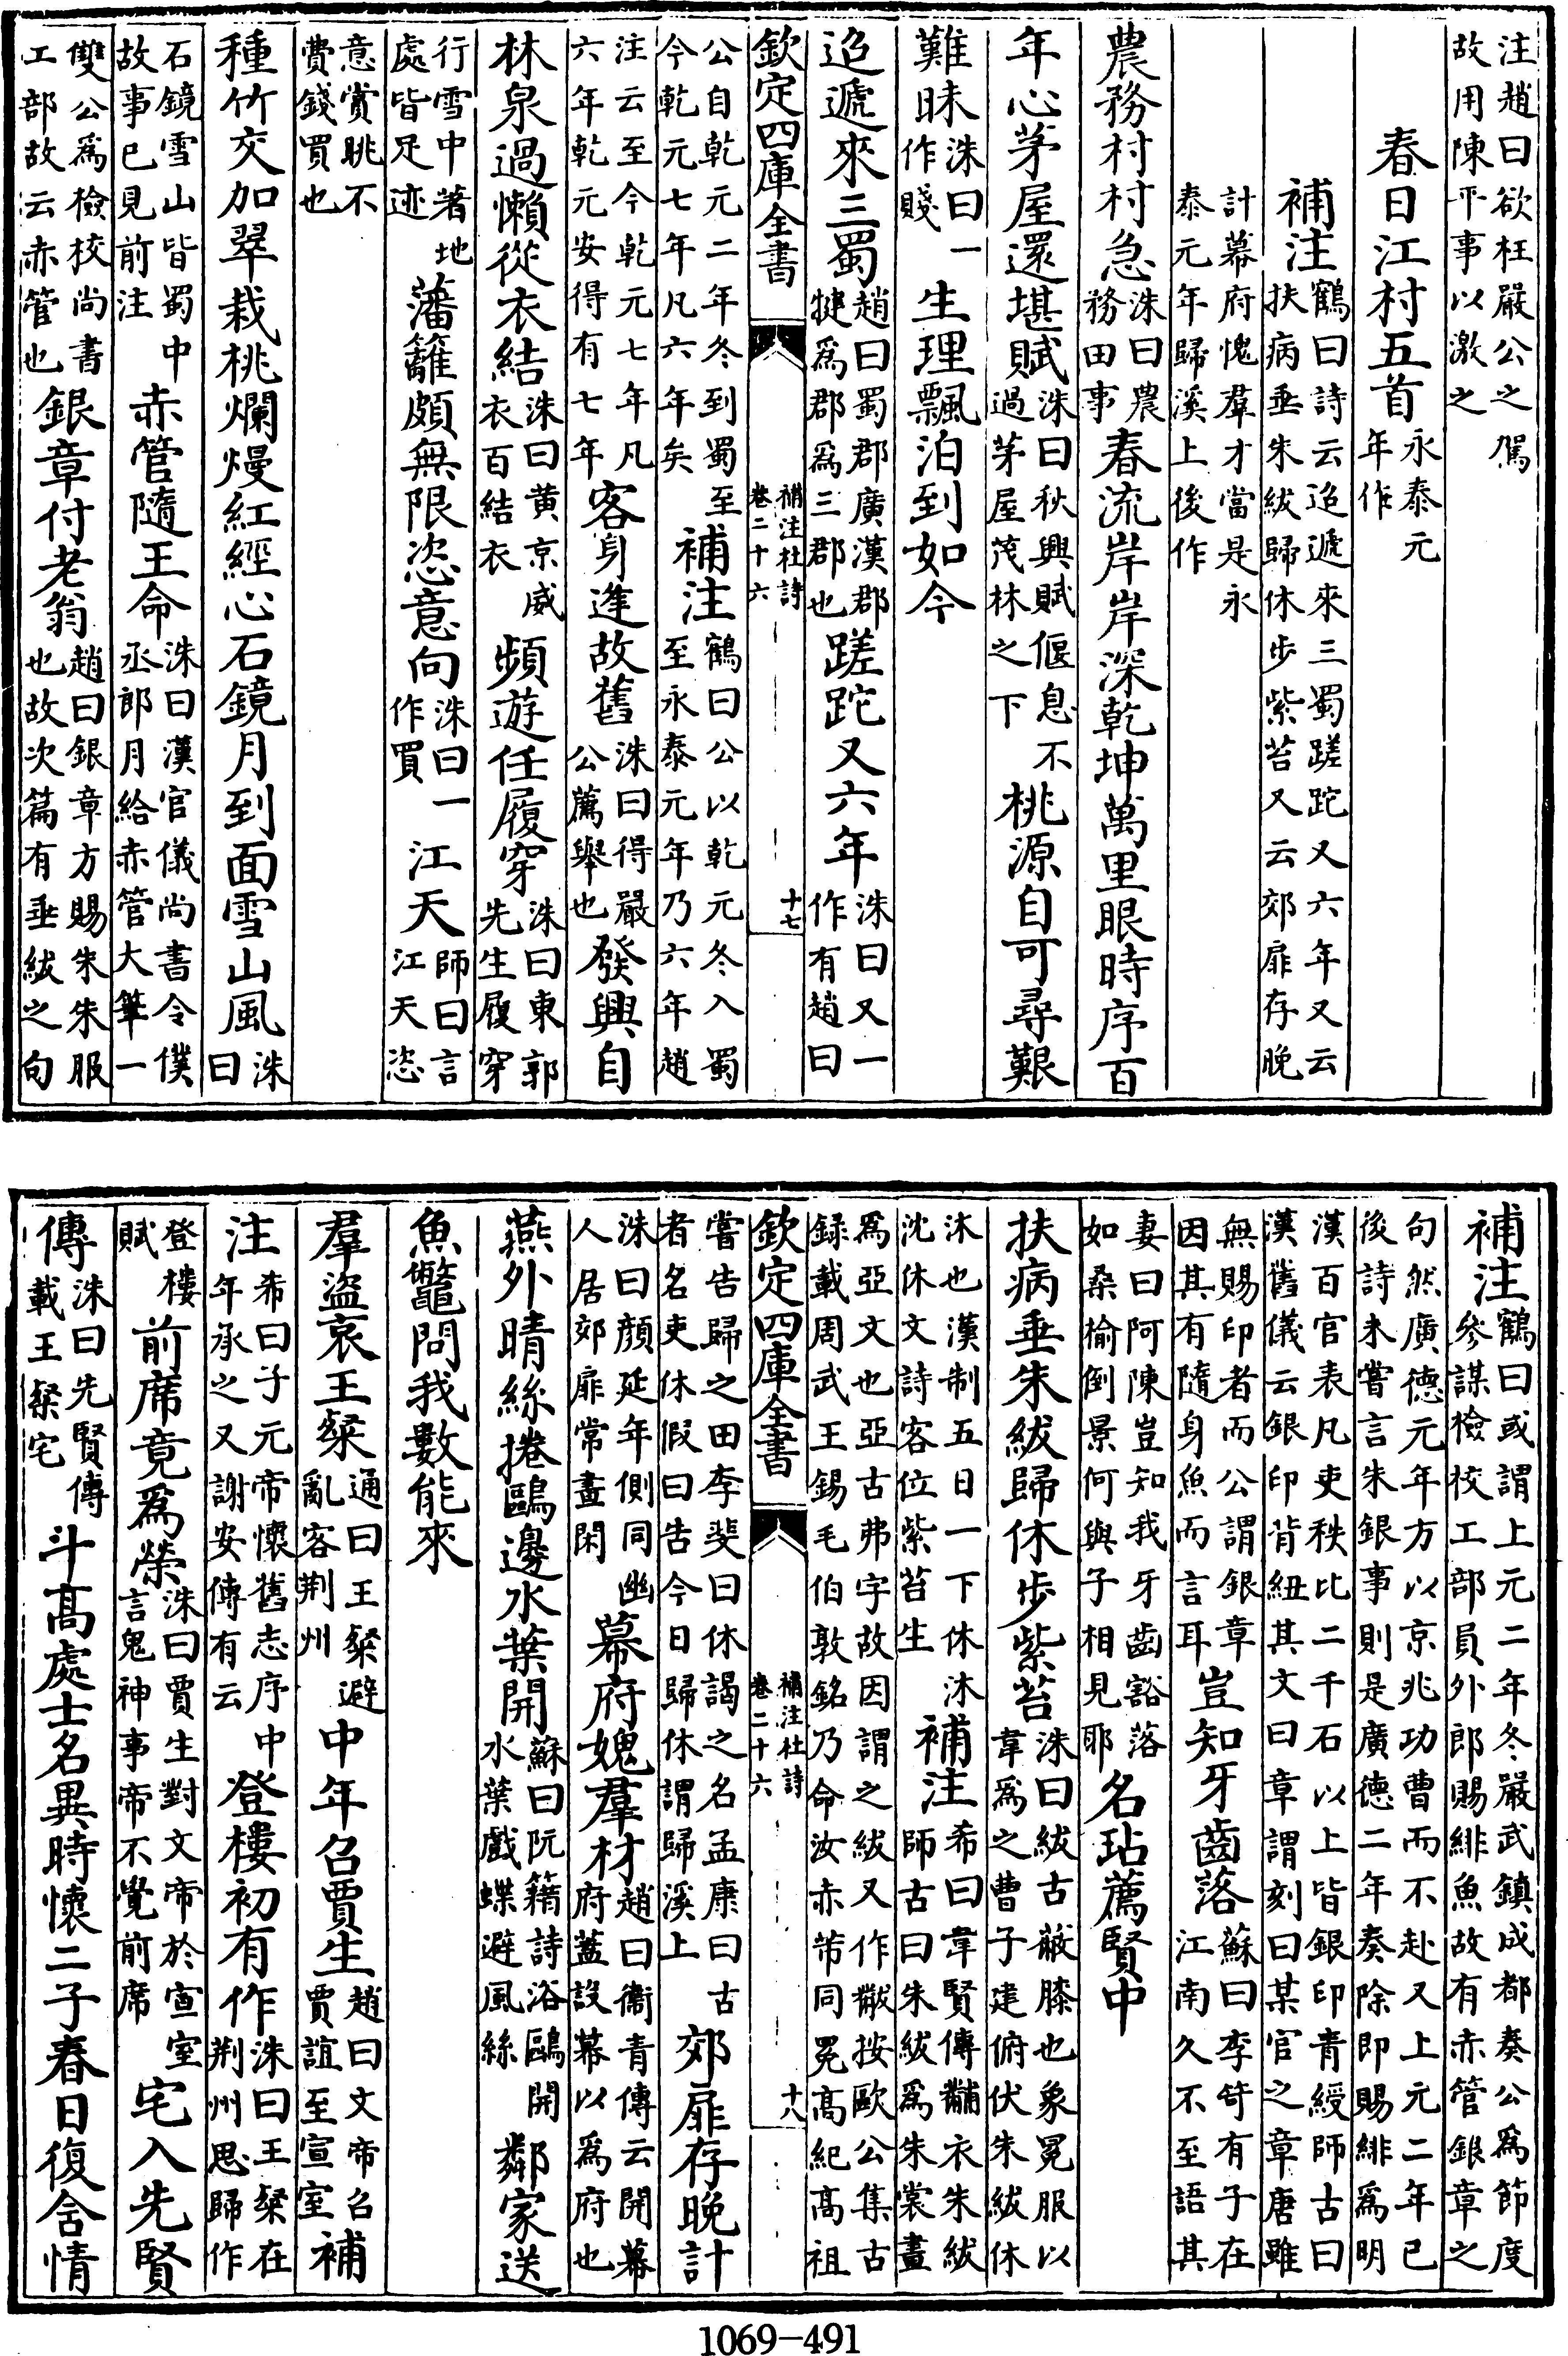 注趙曰欲枉嚴公之駕
故用陳平事以激之
春日江村五首永泰元
年作
補注鶴曰詩云迢遞來三蜀蹉跎又六年又云
扶病垂朱紱歸休步紫苔又云郊扉存晚
計幕府愧羣才當是永
泰元年歸溪上後作
農務村村急洙曰農
務田事春流岸岸深乾坤萬里眼時序百
年心茅屋還堪賦洙曰秋興賦偃息不
過茅屋茂林之下桃源自可尋艱
難昧洙曰一
作賤生理飄泊到如今
迢遞來三蜀趙曰蜀郡廣漢郡
犍為郡為三郡也蹉跎又六年洙曰又一
作有趙曰
欽定四庫全書
補注杜詩
卷二十六
十七
公自乾元二年冬到蜀至
今乾元七年凡六年矣補注鶴曰公以乾元冬入蜀
至永泰元年乃六年趙
注云至今乾元七年凡
六年乾元安得有七年客身逢故舊洙曰得嚴
公薦舉也發興自
林泉過懶從衣結洙曰黄京威
衣百結結衣頻遊任履穿洙曰東郭
先生履穿
行雪中著地
處皆足迹藩籬頗無限恣意向洙曰一
作買江天師曰言
江天恣
意賞眺不
費錢買也
種竹交加翠栽桃爛熳紅經心石鏡月到面雪山風洙
曰
石鏡雪山皆蜀中
故事已見前注赤管隨王命洙曰漢官儀尚書令僕
丞郎月給赤管大筆一
雙公為檢校尚書
工部故云赤管也銀章付老翁趙曰銀章方賜朱朱服
也故次篇有垂紱之句
補注鶴曰或謂上元二年冬嚴武鎮成都奏公為節度
參謀檢校工部員外郎賜緋魚故有赤管銀章之
句然廣德元年方以京兆功曹而不赴又上元二年已
後詩未嘗言朱銀事則是廣德二年奏除即賜緋為明
漢百官表凡吏秩比二千石以上皆銀印青綬師古曰
漢舊儀云銀印背紐其文曰章謂刻曰某官之章唐雖
無賜印者而公謂銀章
因其有隨身魚而言耳豈知牙齒落蘇曰李笴有子在
江南久不至語其
妻曰阿陳豈知我牙齒豁落
如桑榆倒景何與子相見耶名玷薦賢中
扶病垂朱紱歸休步紫苔洙曰紱古蔽膝也象冕服以
韋為之曹子建俯伏朱紱休
沐也漢制五日一下休沐
沈休文詩客位紫苔生補注希曰韋賢傳黼衣朱紱
師古曰朱紱為朱裳畫
為亞文也亞古弗字故因謂之紱又作黻按歐公集古
録載周武王錫毛伯敦銘乃命汝赤芾同冕髙紀髙祖
欽定四庫全書
補注杜詩
卷二十六
十八
嘗告歸之田李斐曰休謁之名孟康曰古
者名吏休假曰告今日歸休謂歸溪上郊扉存晚計
洙曰顔延年側同幽
人居郊扉常晝閑幕府媿羣材趙曰衞青傳云開幕
府蓋設幕以為府也
燕外晴絲捲鷗邊水葉開蘇曰阮籍詩浴鷗開
水葉戲蝶避風絲鄰家送
魚鼈問我數能來
羣盜哀王粲通曰王粲避
亂客荆州中年召賈生趙曰文帝召
賈誼至宣室補
注希曰子元帝懷舊志序中
年承之又謝安傳有云登樓初有作洙曰王粲在
荆州思歸作
登樓
賦前席竟為榮洙曰賈生對文帝於宣室
言鬼神事帝不覺前席宅入先賢
傳洙曰先賢傳
載王粲宅斗髙處士名異時懷二子春日復含情
1069-491